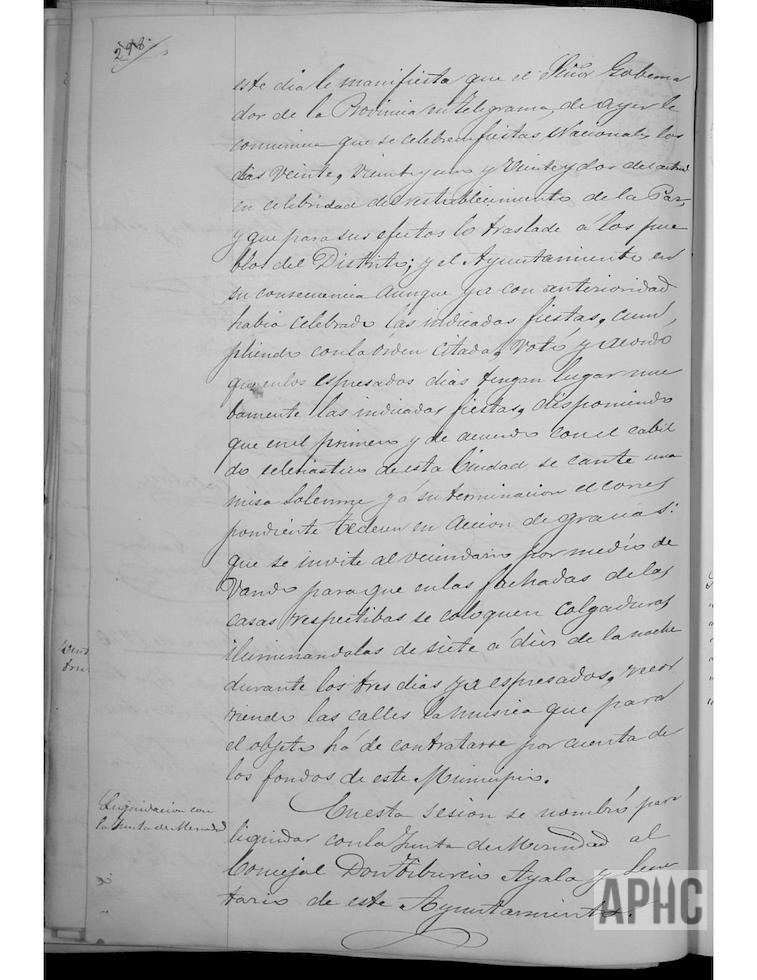 298.
este dia le manifiesta que el Señor Goberna
dor de la Provincia en telegrama, de ayer le
comunica que se celebren fiestas Nacionales los
dias Veinte, Veinte y uno y Veinte y dos del actual
en celebridad del restablecimiento de la Paz,
y que para sus efectos lo traslade á los pue
blos del Distrito; y el Ayuntamiento en
su consecuencia aunque ya con anterioridad
habia celebrado las indicadas fiestas, cum,
pliendo con la orden citada, Votó y acordó
que en los espresados dias tengan lugar nue
bamente las indicadas fiestas, disponiendo
que en el primero y de acuerdo con el cabil
do eclesiastico de esta Ciudad se cante una
misa Solemne y á su terminacion el corres
pondiente Tedeum en accion de gracias:
que se invite al vecindario por medio de
Vando para que en las fachadas de las
casas respectibas se coloquen colgaduras
iluminandolas de siete á diez de la noche
durante los tres dias ya espresados, recor
riendo las calles la musica que para
el objeto há de contratarse por cuenta de
los fondos de este Municipio.
Liquidacion con
la Junta de Merindad
En esta sesion se nombró para
liquidar con la Junta de Merindad al
Concejal Don Tiburcio Ayala y Secre
tario de este Ayuntamiento.
APHC